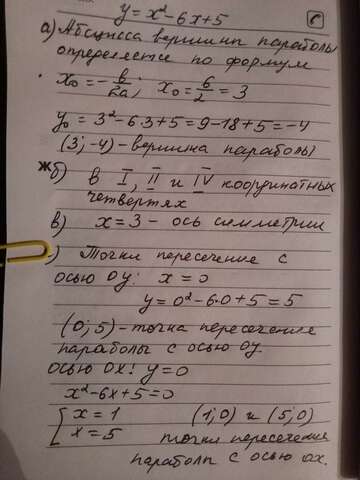 y = x² - 6x + 5
а) Абсцисса вершины параболы
определяется по формул
x₀ = -b/2a; x₀ = 6/2 = 3
y₀ = 3² - 6·3 + 5 = 9 - 18 + 5 = -4
(3; -4) - вершина параболы
ж б) в I, II и IV координатных
четвертях
в) x = 3 - ось симметрии
) Точки пересечение с
осью OY: x = 0
y = 0² - 6·0 + 5 = 5
(0; 5) - точка пересечение
параболы с осью OY.
осью OX: y = 0
x² - 6x + 5 = 0
[ x = 1 (1; 0) и (5; 0)
x = 5 точки пересечение
параболы с осью OX.